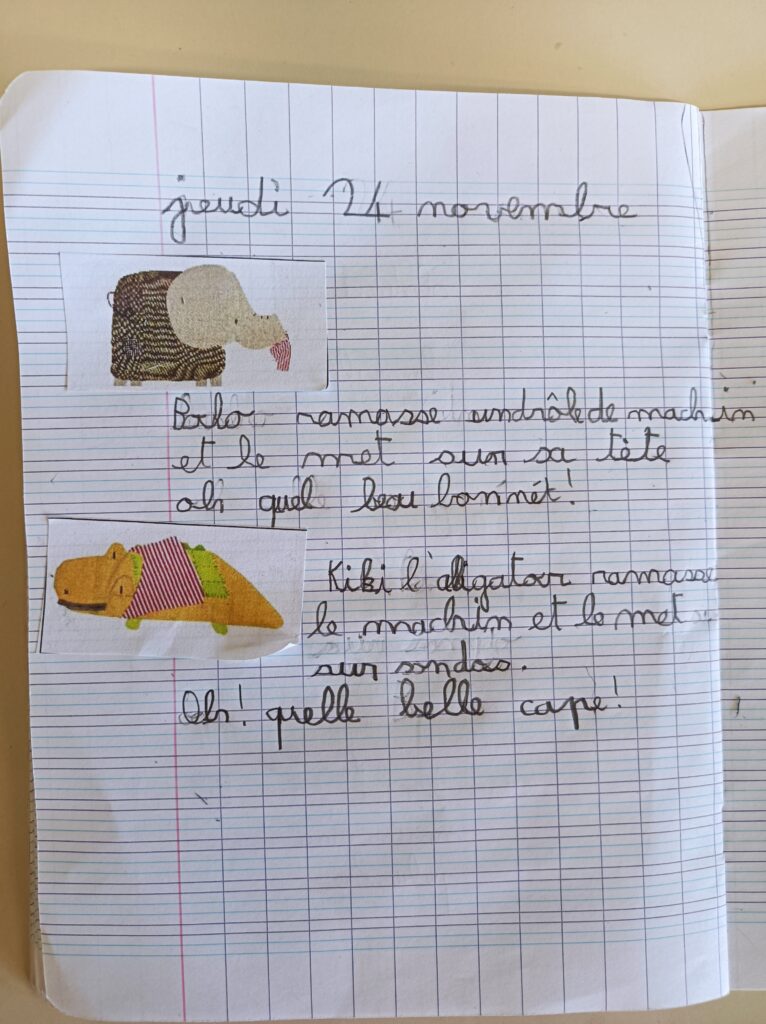 jeudi 24 novembre
ramasse undrôlede machin
et le met sur sa tète
oh quél beau bonnét!
Kiki l'alligator ramasse
le machin et le met
sur sondos.
Oh! quelle belle cape!